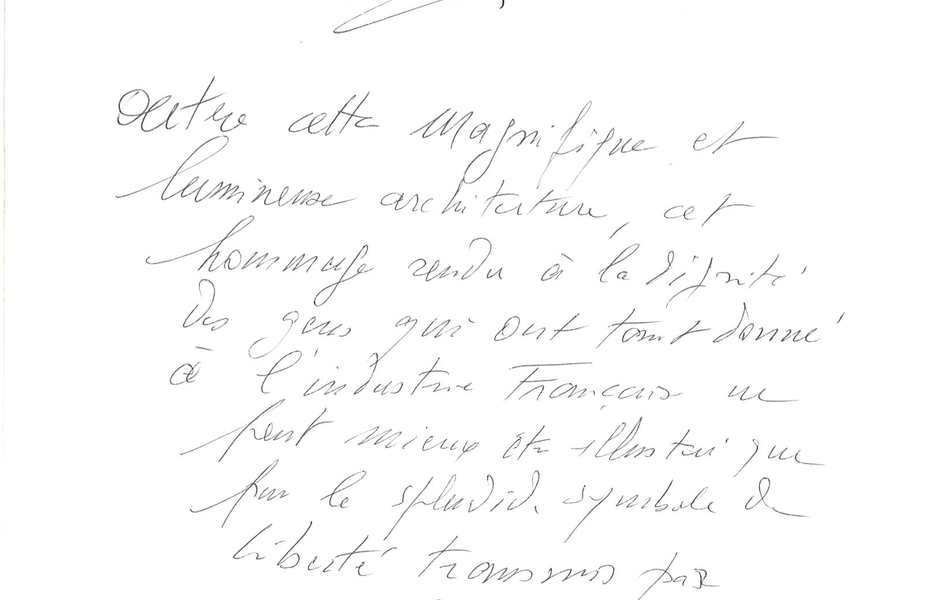 Outre cette magnifique et
lumineuse architecture, cet
hommage rendu à la dignité
des gens qui ont tant donné
à l'industrie Française ne
peut mieux être illustré que
par le splendide symbole de
liberté transmis par